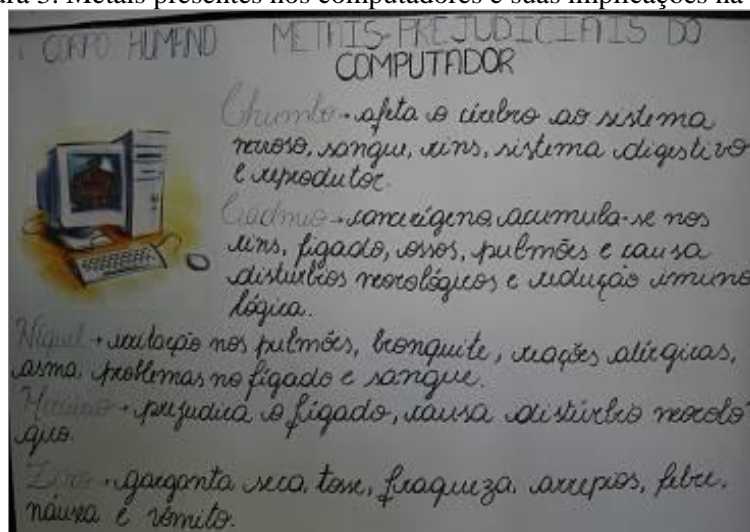 ra 3: Metais presentes nos computadores e suas implicações na
CORPO HUMANO METAIS PREJUDICIAIS DO
COMPUTADOR
Chumbo - afeta o cérebro ao sistema
nervoso, sangue, rins, sistema digestivo
e reprodutor.
Cádmio - cancerígeno acumula-se nos
rins, fígado, ossos, pulmões e causa
distúrbios neorológicos e redução imuno
lógica.
Níquel - irritação nos pulmões, bronquite, reações alérgicas,
asma, problemas no fígado e sangue.
- prejudica o fígado, causa distúrbio neoroló
gico.
Zinco - garganta seca, tosse, fraqueza, arrepios, febre,
náusea e vômito.